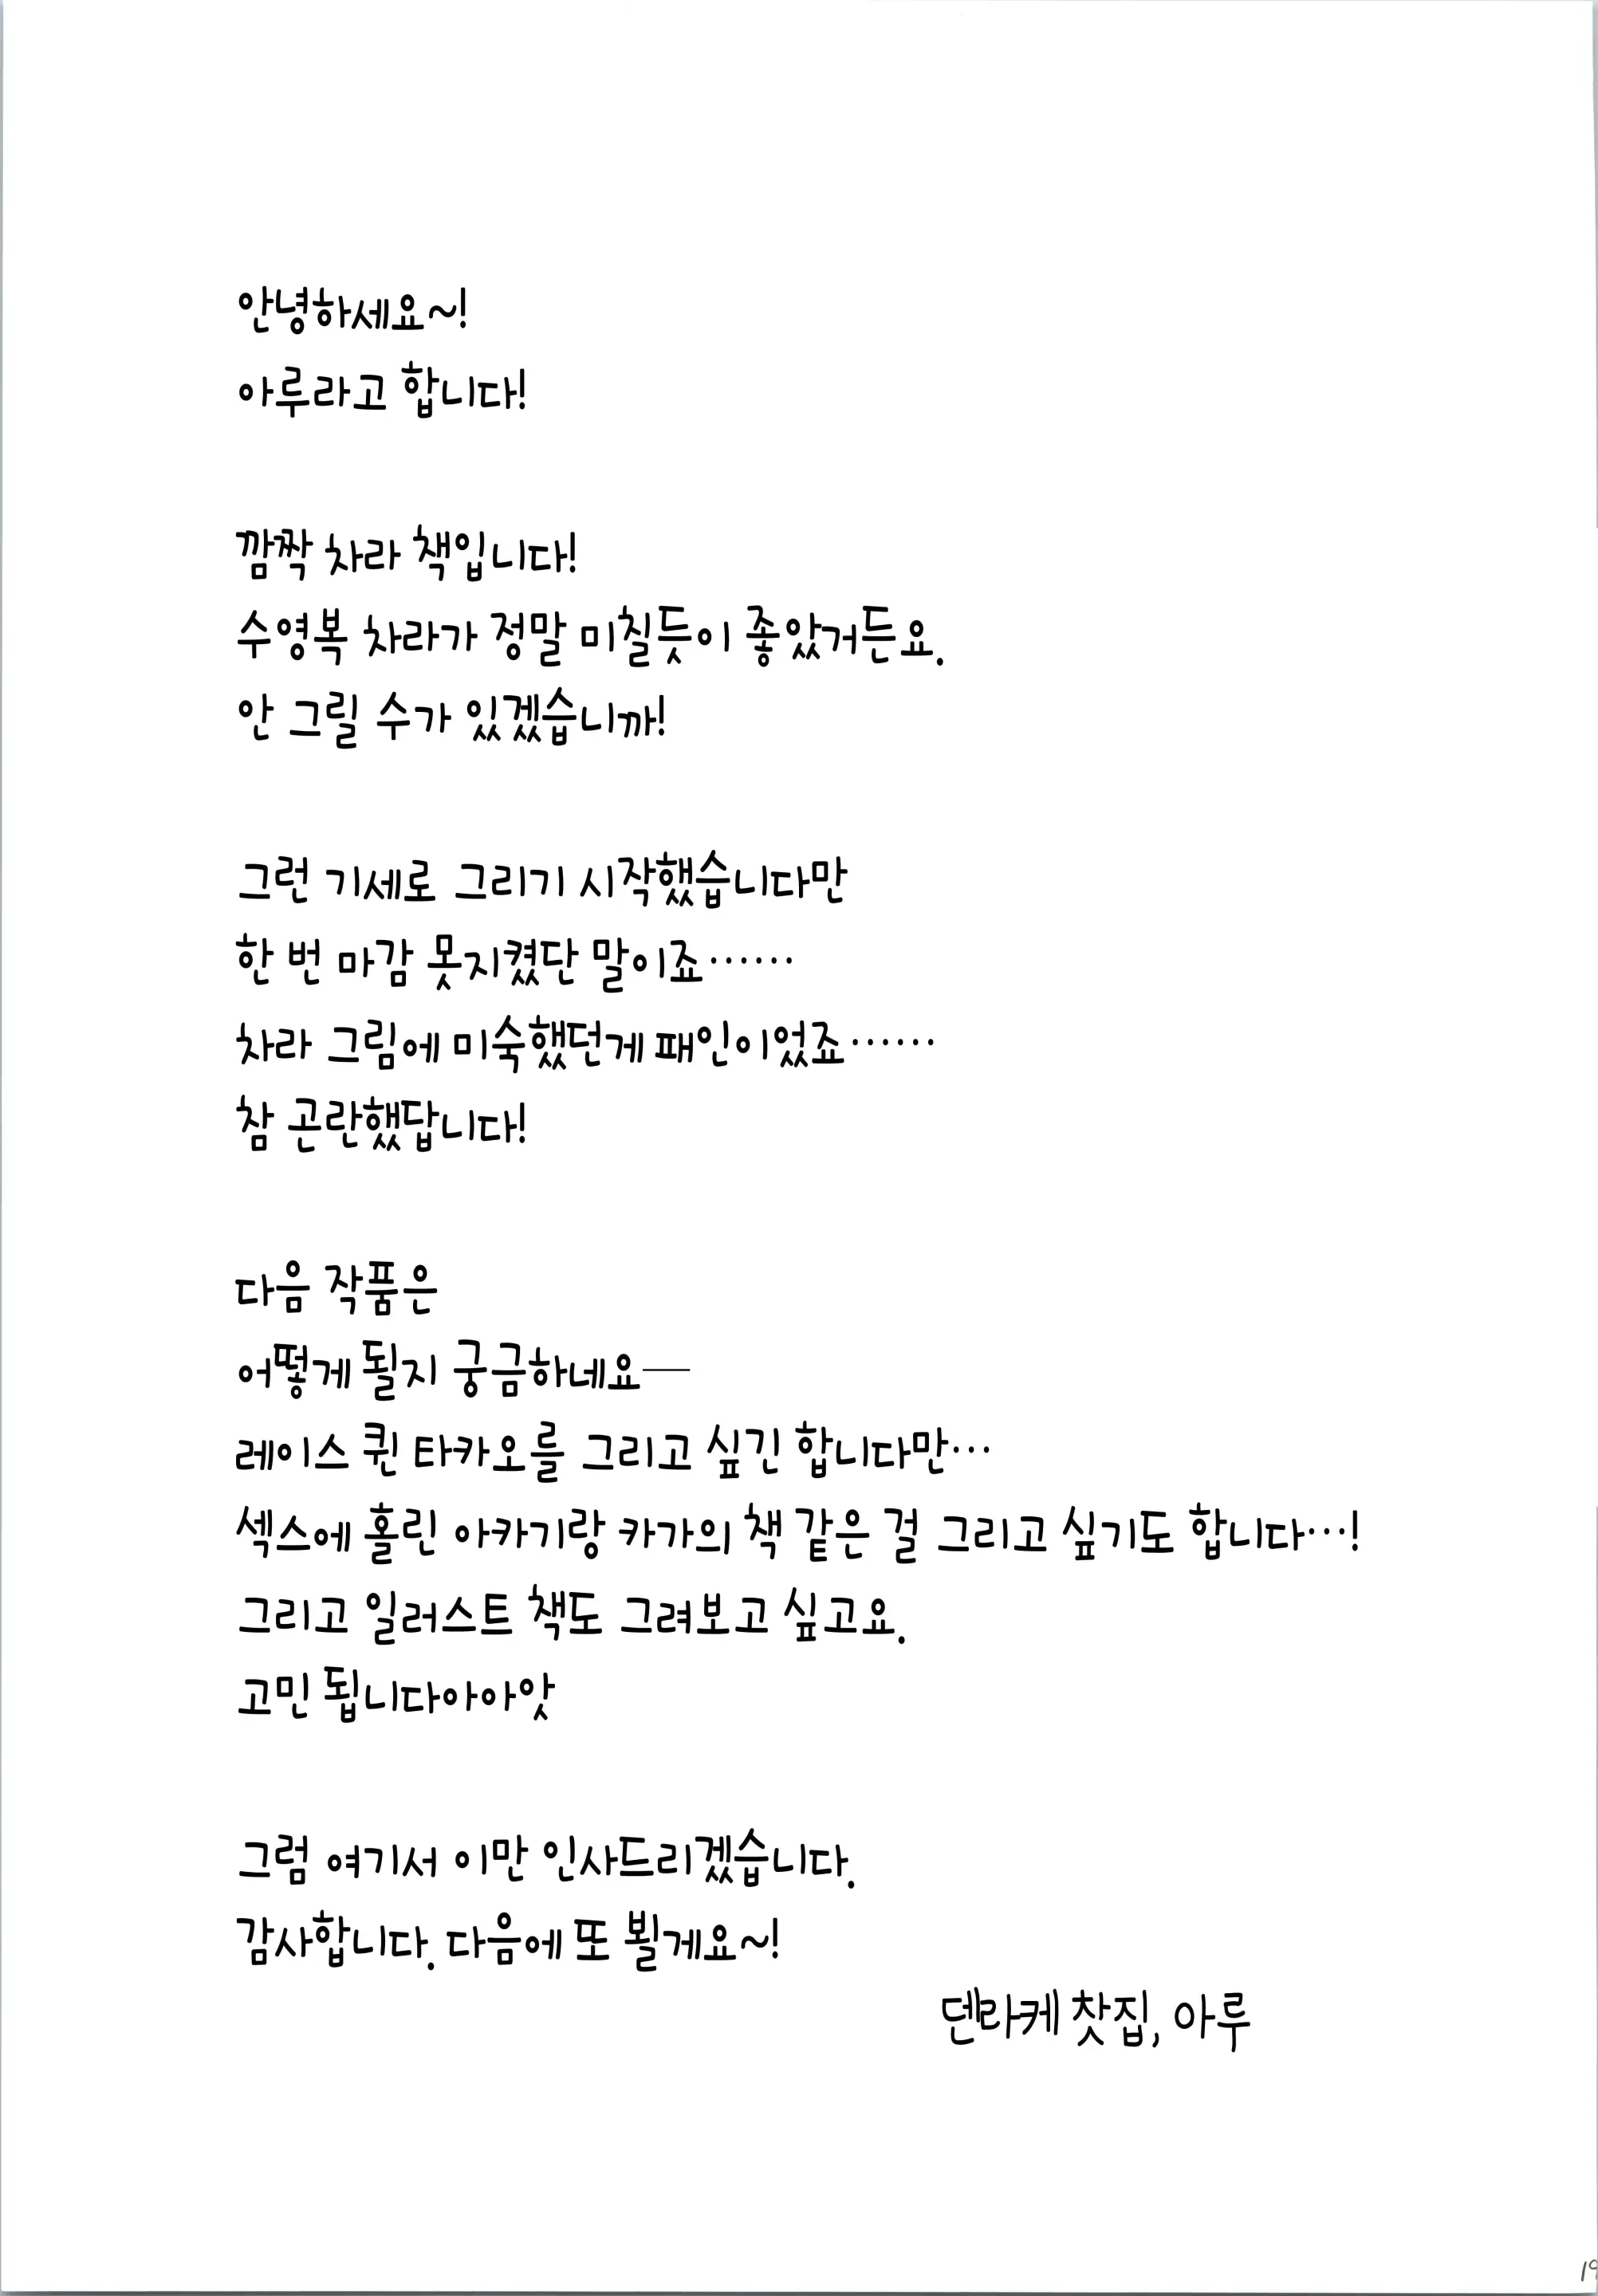 안녕하세요~!
아루라고 합니다!
깜짝 차라 책입니다!
수영복 차라가 정말 미칠듯이 좋았거든요.
안 그릴 수가 있겠습니까!
그런 기세로 그리기 시작했습니다만
한 번 마감 못지켰단 말이죠……
차라 그림에 미숙했던게 패인이었죠……
참 곤란했답니다!
다음 작품은
어떻게 될지 궁금하네요──
레이스 퀸 타카오를 그리고 싶긴 합니다만…
섹스에 홀린 아카기랑 카가의 책 같은 걸 그리고 싶기도 합니다…!
그리고 일러스트 책도 그려보고 싶고요.
고민 됩니다아아앗
그럼 여기서 이만 인사드리겠습니다.
감사합니다. 다음에 또 뵐게요~!
덴라케 찻집, 아루
19